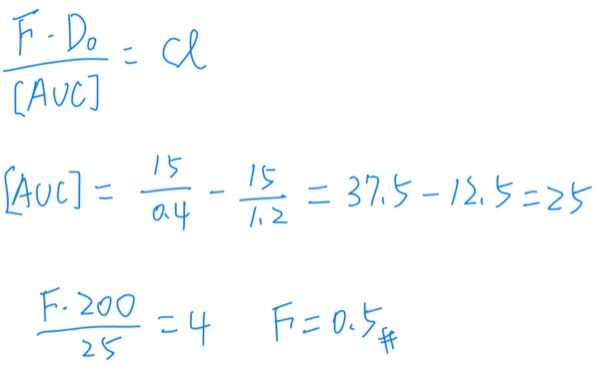 F · D₀ / [AUC] = Cl
[AUC] = 15/0.4 - 15/1.2 = 37.5 - 12.5 = 25
F · 200 / 25 = 4 F = 0.5 #